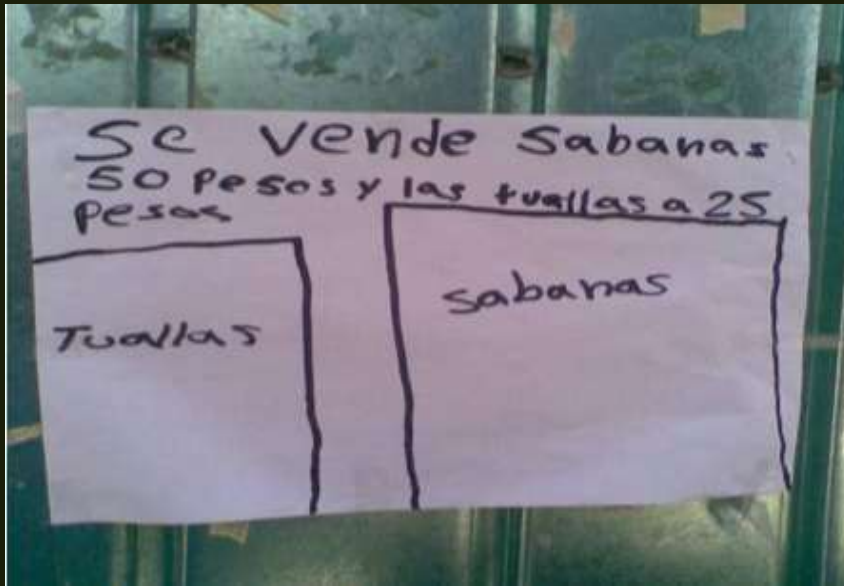 Se vende sabanas
50 pesos y las tuallas a 25
pesos
Tuallas
sabanas